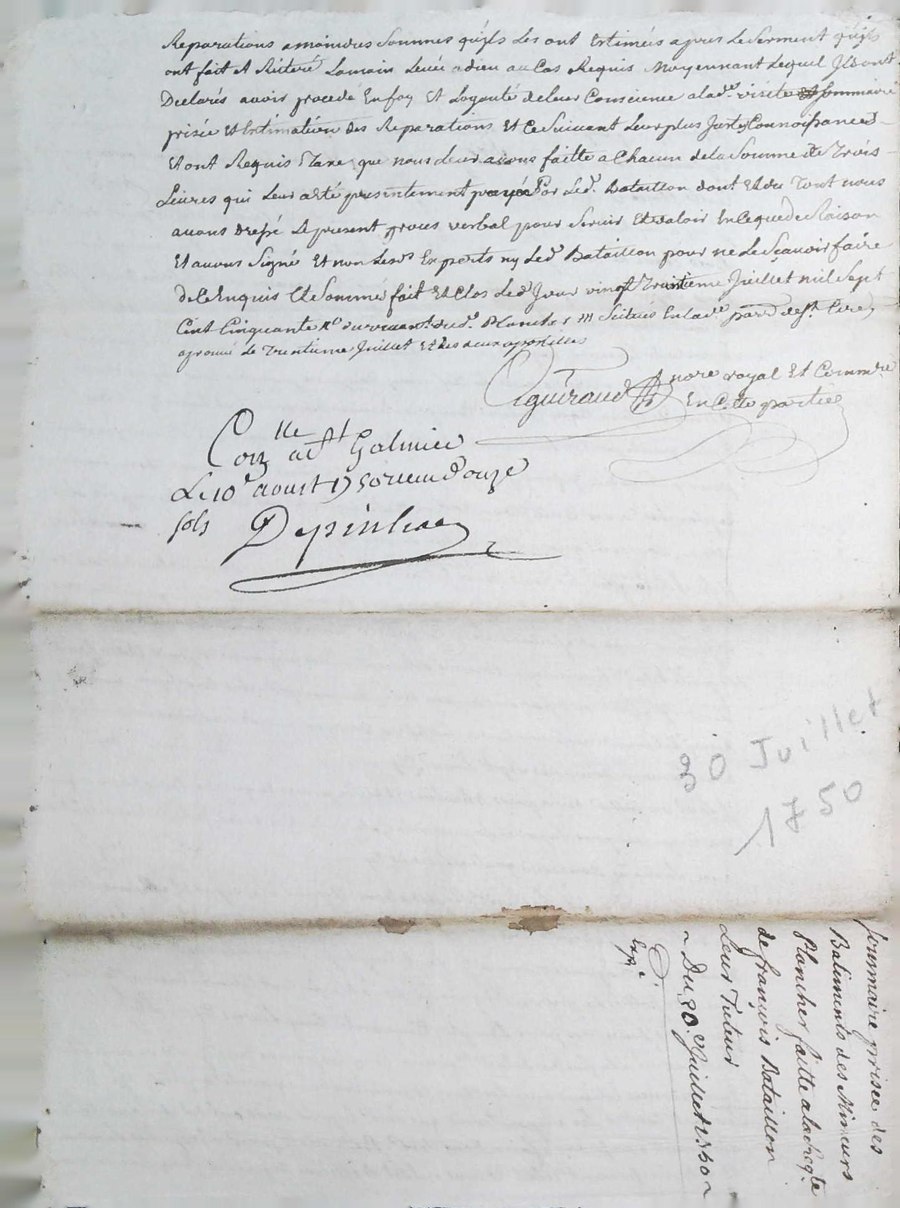 Reparations amoindres Sommes qu'ils Les ont Estimées apres Le Serment qu'ils
ont fait Et Reiteré Lamain Levée adieu au Cas Requis Moyennant Lequel Ils ont
Declarés avoir procedé En foy Et Loyauté deleur Conscience alad.e visite Sommaire
prisée Et Estimation des Reparations Et Ce Suivant Leur plus Justes Connoissances
Et ont Requis Taxe que nous Leur avons faitte a Chacun dela Somme de Trois
Livres qui Leur a eté presentement payée Par Led. Bataillon dont Et du Tout nous
avons Dressé Le present proces verbal pour Servir Et valoir En Ce que de Raison
Et avons Signé Et non Lesd.s Experts ny Led. Bataillon pour ne Le Scavoir faire
de Ce Enquis Et Sommé fait Et Clos Led. Jour vingt Juillet mil Sept
Cent Cinquante dud. Plancher Scitués En lad.e
aprouvé Le Trentieme Juillet Et Les deux apostilles
nore royal Et Commre
En Cette partie
Con.lle
Le 10e aoust 1750 receu douze
sols
30 Juillet
1750
Sommaire prisée des
Batiments des Mineurs
Plancher faitte ala Req.te
de françois Bataillon
Leur Tuteur
~ Du 30. Juillet 1750 ~
Exp.e